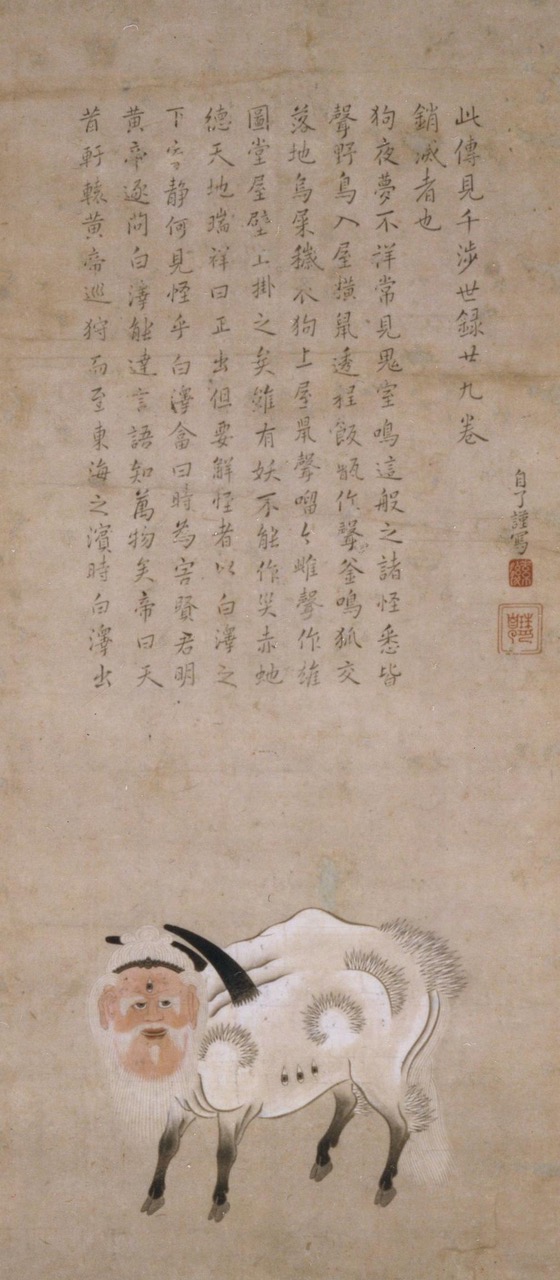 昔軒轅黄帝巡狩而至東海之濱時白澤出
黄帝逐問白澤能達言語知萬物矣帝曰天
下寧静何見怪乎白澤畣曰時為害賢君明
德天地瑞祥曰正出但要解怪者以白澤之
圖堂屋壁上掛之矣雖有妖不能作災赤虵
落地鳥屎穢衣狗上屋鼠聲々雌聲作雄
聲野鳥入屋横鼠透程飯甑作聲釜鳴狐交
狗夜夢不祥常見鬼室鳴這般之諸怪悉皆
銷滅者也
此傳見千渉世録廿九卷
自了謹寫